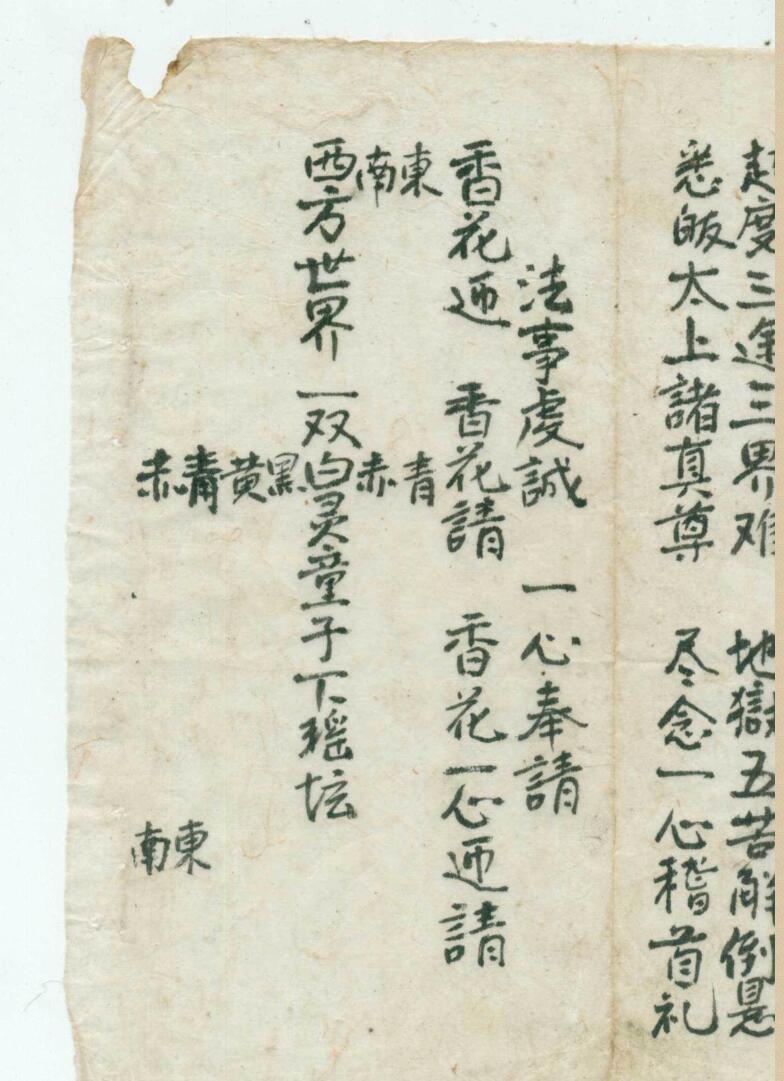 超度三途三界难 地獄五苦解倒悬
悉皈太上諸真尊 尽念一心稽首礼
法事虔誠 一心奉請
香花迎 香花請 香花一心迎請
東 青
南 赤
西方世界一双白灵童子下瑶坛
黑
黄
青 東
赤 南